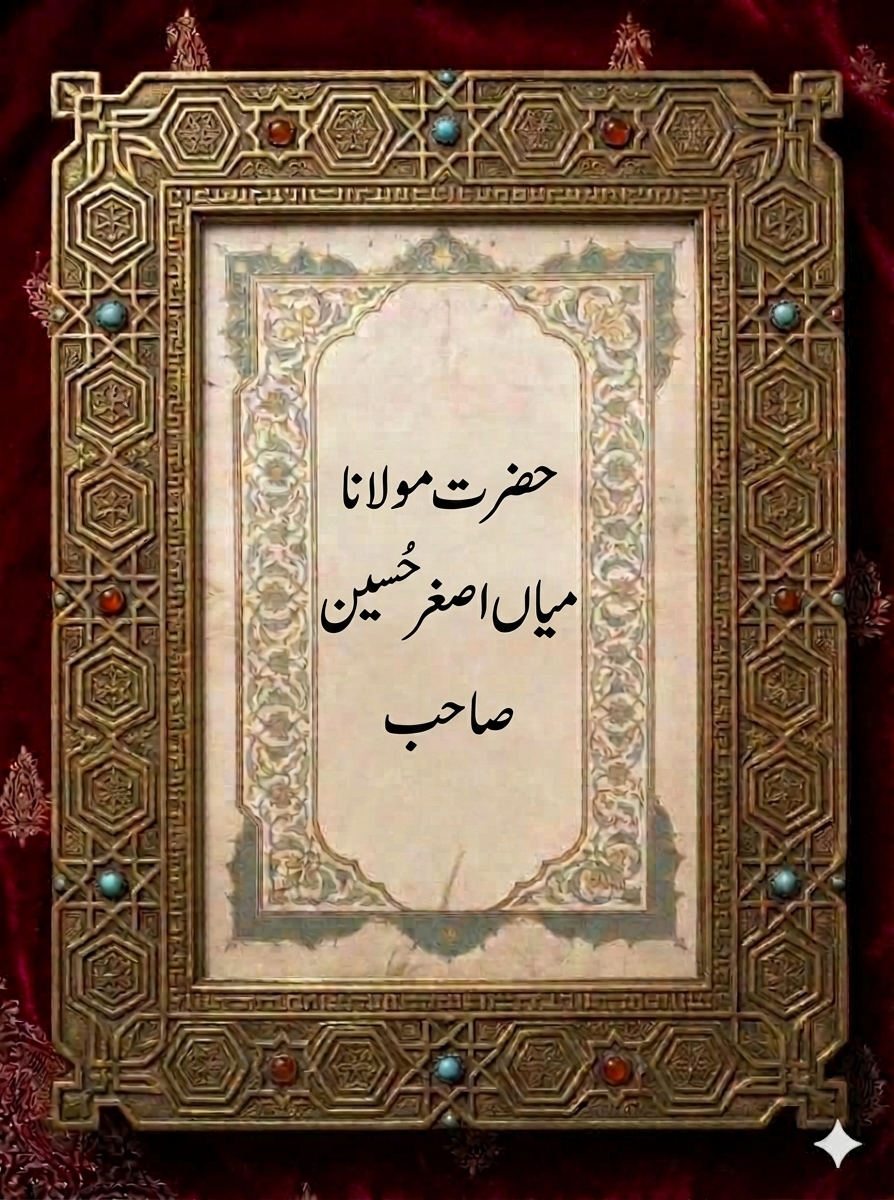 حضرت مولانا
میاں اصغر حُسین
صاحب